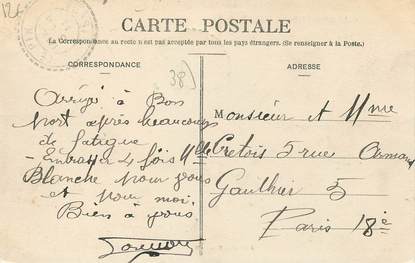 126
CARTE POSTALE
La Correspondance au recto n'est pas acceptée par tous les pays étrangers. (Se renseigner à la Poste.)
CORRESPONDANCE
ADRESSE
38
Arrivé à Bon
Port après beaucoup
de fatigue
Embrasse 4 fois Mlle
Blanche pour vous
et pour moi.
Bien à vous
Monsieur et Mme
Cretois 5 rue Armand
Gaulthier 5
Paris 18e